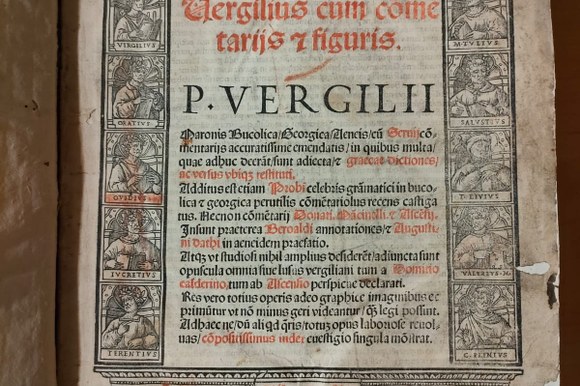 Vergilius cum come
tarijs ⁊ figuris.
P. VERGILII
Maronis Bucolica/Georgica/Aeneis/cū Seruij cō
mentarijs accuratissime emendatis/in quibus multa/
quae adhuc deerāt/sunt adiecta/⁊ graecae dictiones/
ac versus vbiqꝫ restituti.
Additus est etiam Probi celebris grāmatici in buco
lica ⁊ georgica perutilis cōmētariolus recens castiga
tus. Necnon cōmētarij Donati, Mācinelli, ⁊ Ascēsij.
Insunt praeterea Beroaldi annotationes/⁊ Augusti
ni dathi in aeneidem praefatio.
Atqꝫ vt studiosi nihil amplius desiderēt/adiuncta sunt
opuscula omnia siue lusus vergiliani tum a Domicio
calderino, tum ab Ascensio perspicue declarati.
Res vero totius operis adeo graphice imaginibus ex
primūtur vt nō minus geri videantur/qꝫ legi possunt.
Adhaec ne/dū aliqd qris/totuꝫ opus laboriose reuol
uas/cōpositissimus index euestigio singula mōstrat.
VIRGILIUS
ORATIUS
OVIDIUS
LUCRETIUS
TERENTIUS
M·TULIUS
SALUSTIUS
T·LIVIUS
VALERIUS·M·
C·PLINIUS